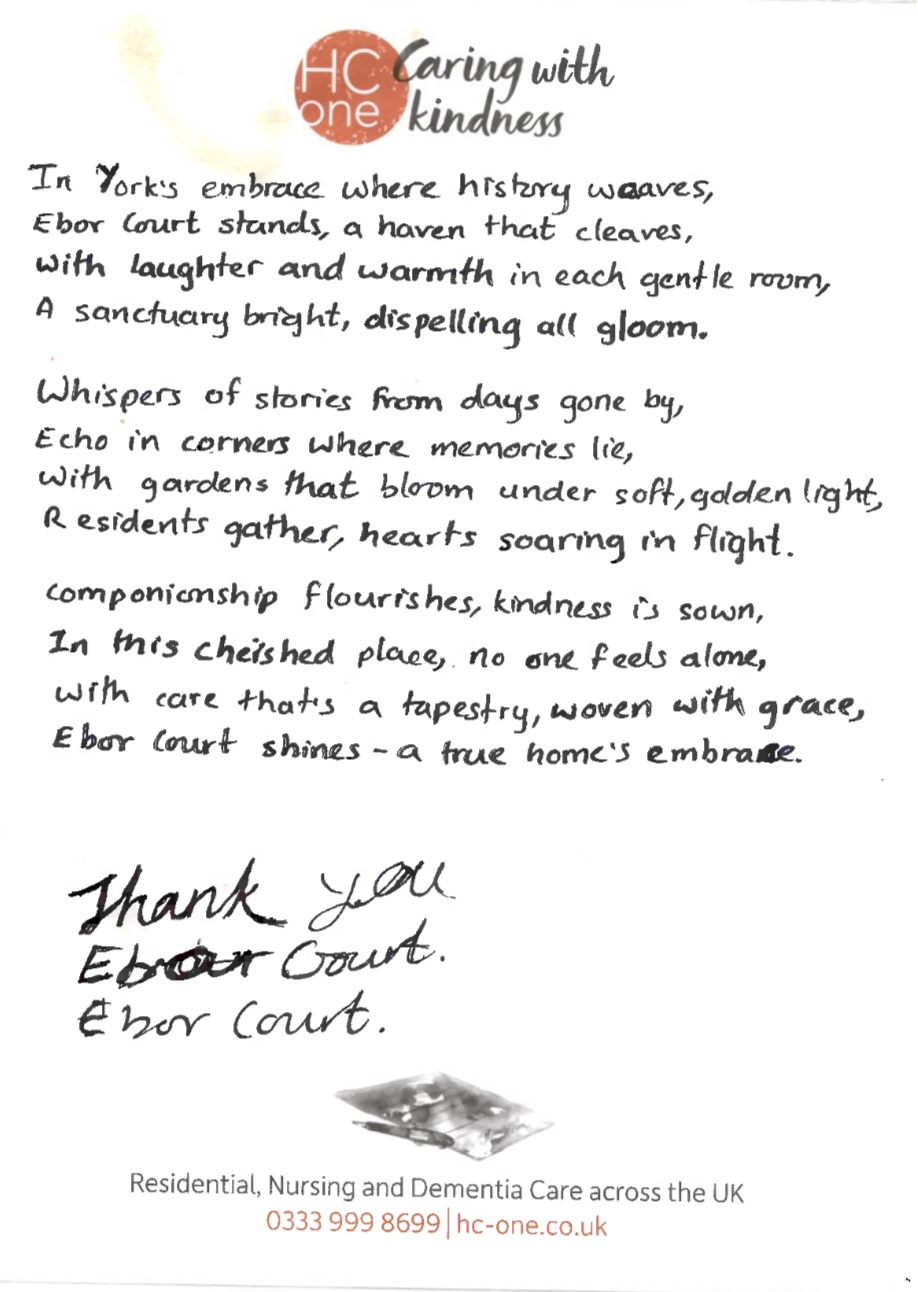 HC one Caring with kindness
In York's embrace where history weaves,
Ebor Court stands, a haven that cleaves,
with laughter and warmth in each gentle room,
A sanctuary bright, dispelling all gloom.
Whispers of stories from days gone by,
Echo in corners where memories lie,
with gardens that bloom under soft, golden light,
Residents gather, hearts soaring in flight.
companionship flourishes, kindness is sown,
In this cheished place, no one feels alone,
with care that's a tapestry, woven with grace,
Ebor Court shines - a true home's embrace.
Thank you
Ebour Court.
Ebor Court.
Residential, Nursing and Dementia Care across the UK
0333 999 8699 | hc-one.co.uk